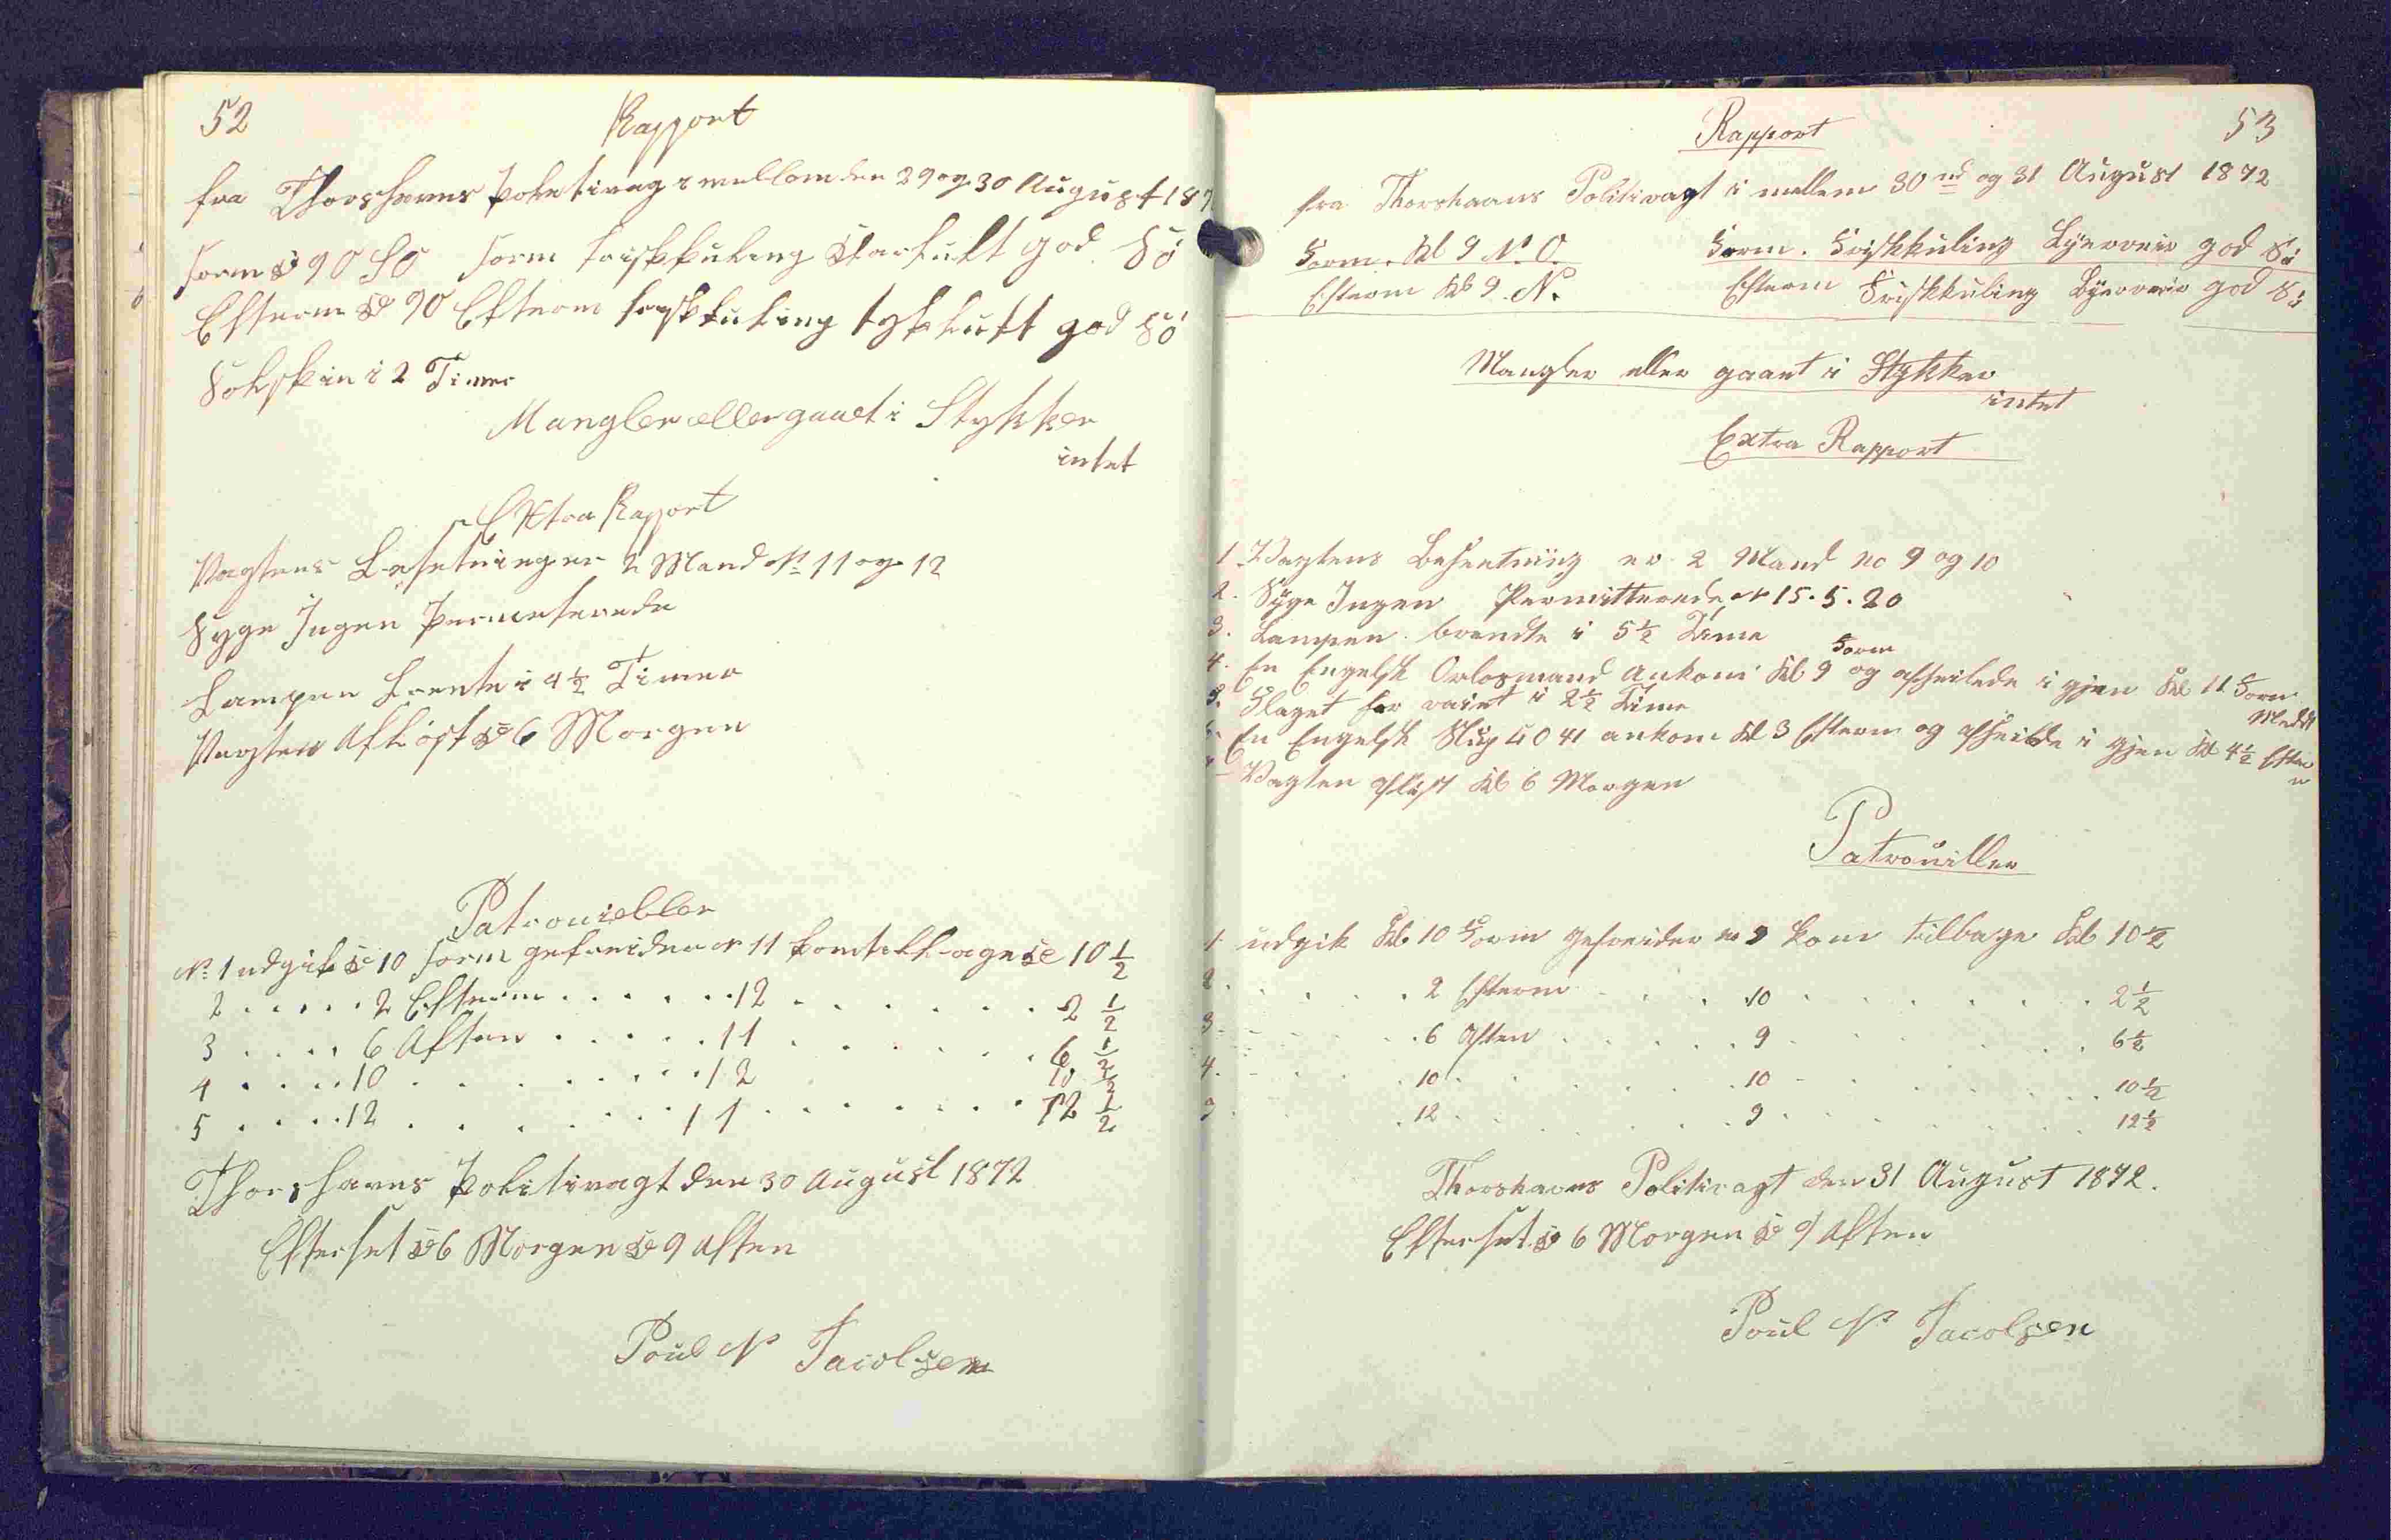 52
Rapport
fra Thorshavns Politivag i mellem den 29 og 30 August 187
Form Kl 9 O S O Form friskkuling Klarluft god Sö
Efterm Kl 9 O Efterm friskkuling tykluft god Sö
Solskin i 2 Timer
Mangler eller gaaet i Stykker
intet
Extra Rapport
Vagtens Besetning er 2 Mand No 11 og 12
Syge Ingen Permiterede
Lampen brente i 4½ Timer
Vagten Aflöst Kl 6 Morgen
Patrouiller
No 1 udgik Kl 10 Form gefreider No 11 kom tilbage Kl 10 ½
2 . . . . . 2 Efterm . . . . . . 12 . . . . . . 2 ½
3 . . . . 6 Aften . . . . . 11 . . . . . . 6 ½
4 . . . . 10 . . . . . . . . 12 10 ½
5 . . . . 12 . . . . . . . 11 . . . . . . . 12 ½
Thorshavns Politivagt den 30 August 1872
Efterset Kl 6 Morgen Kl 9 Aften
Poul N Jacobsen
53
Rapport
fra Thorshavns Politivagt i mellem 30 og 31 August 1872
Form. Kl 9 N. O. Form. Friskkuling Byerveir god Sö
Efterm Kl 9 N. Efterm Friskkuling Byerveir god Sö
Mangler eller gaaet i Stykker
intet
Extra Rapport
1. Vagtens Beseetning er 2 Mand no 9 og 10
2. Syge Ingen Permitterede No 15. 5. 20
3. Lampen brendte i 5½ Time
4. En Engelsk Orlogmand Ankom Kl 9 Form og afseilede i gjen Kl 11 Form
5. Flaget har vaiet i 2½ Time
En Engelsk Slup ankom Kl 3 Efterm og afseilede i gjen Kl 4½ Efterm
Vagten aflöst Kl 6 Morgen
Patrouiller
1. udgik Kl 10 Form gefreider no 9 kom tilbage Kl 10½
2 . . . . . 2 Efterm . . . 10 . . . . . . . 2½
3 . . . . . 6 Aften . . . . . 9 . . . . . . . 6½
4. . . . . 10 . . . . . . 10 . . . . . . . 10½
5 . . . . 12 . . . . . . . 9 . . . . . . . 12½
Thorshavns Politivagt den 31 August 1872.
Efterset Kl 6 Morgen Kl 9 Aften
Poul N Jacobsen